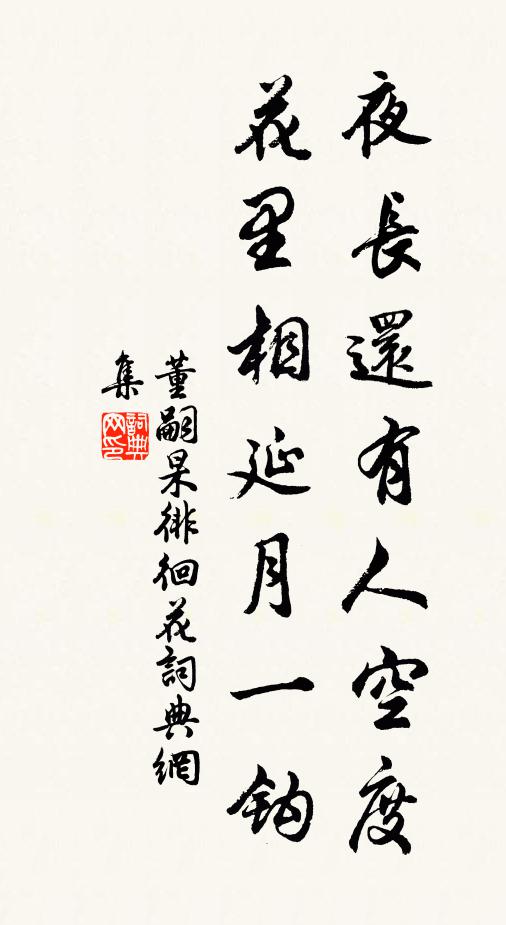 夜長還有人空度
花里相延月一鈎
董嗣杲徘徊花詞典網
集
詞典
网印